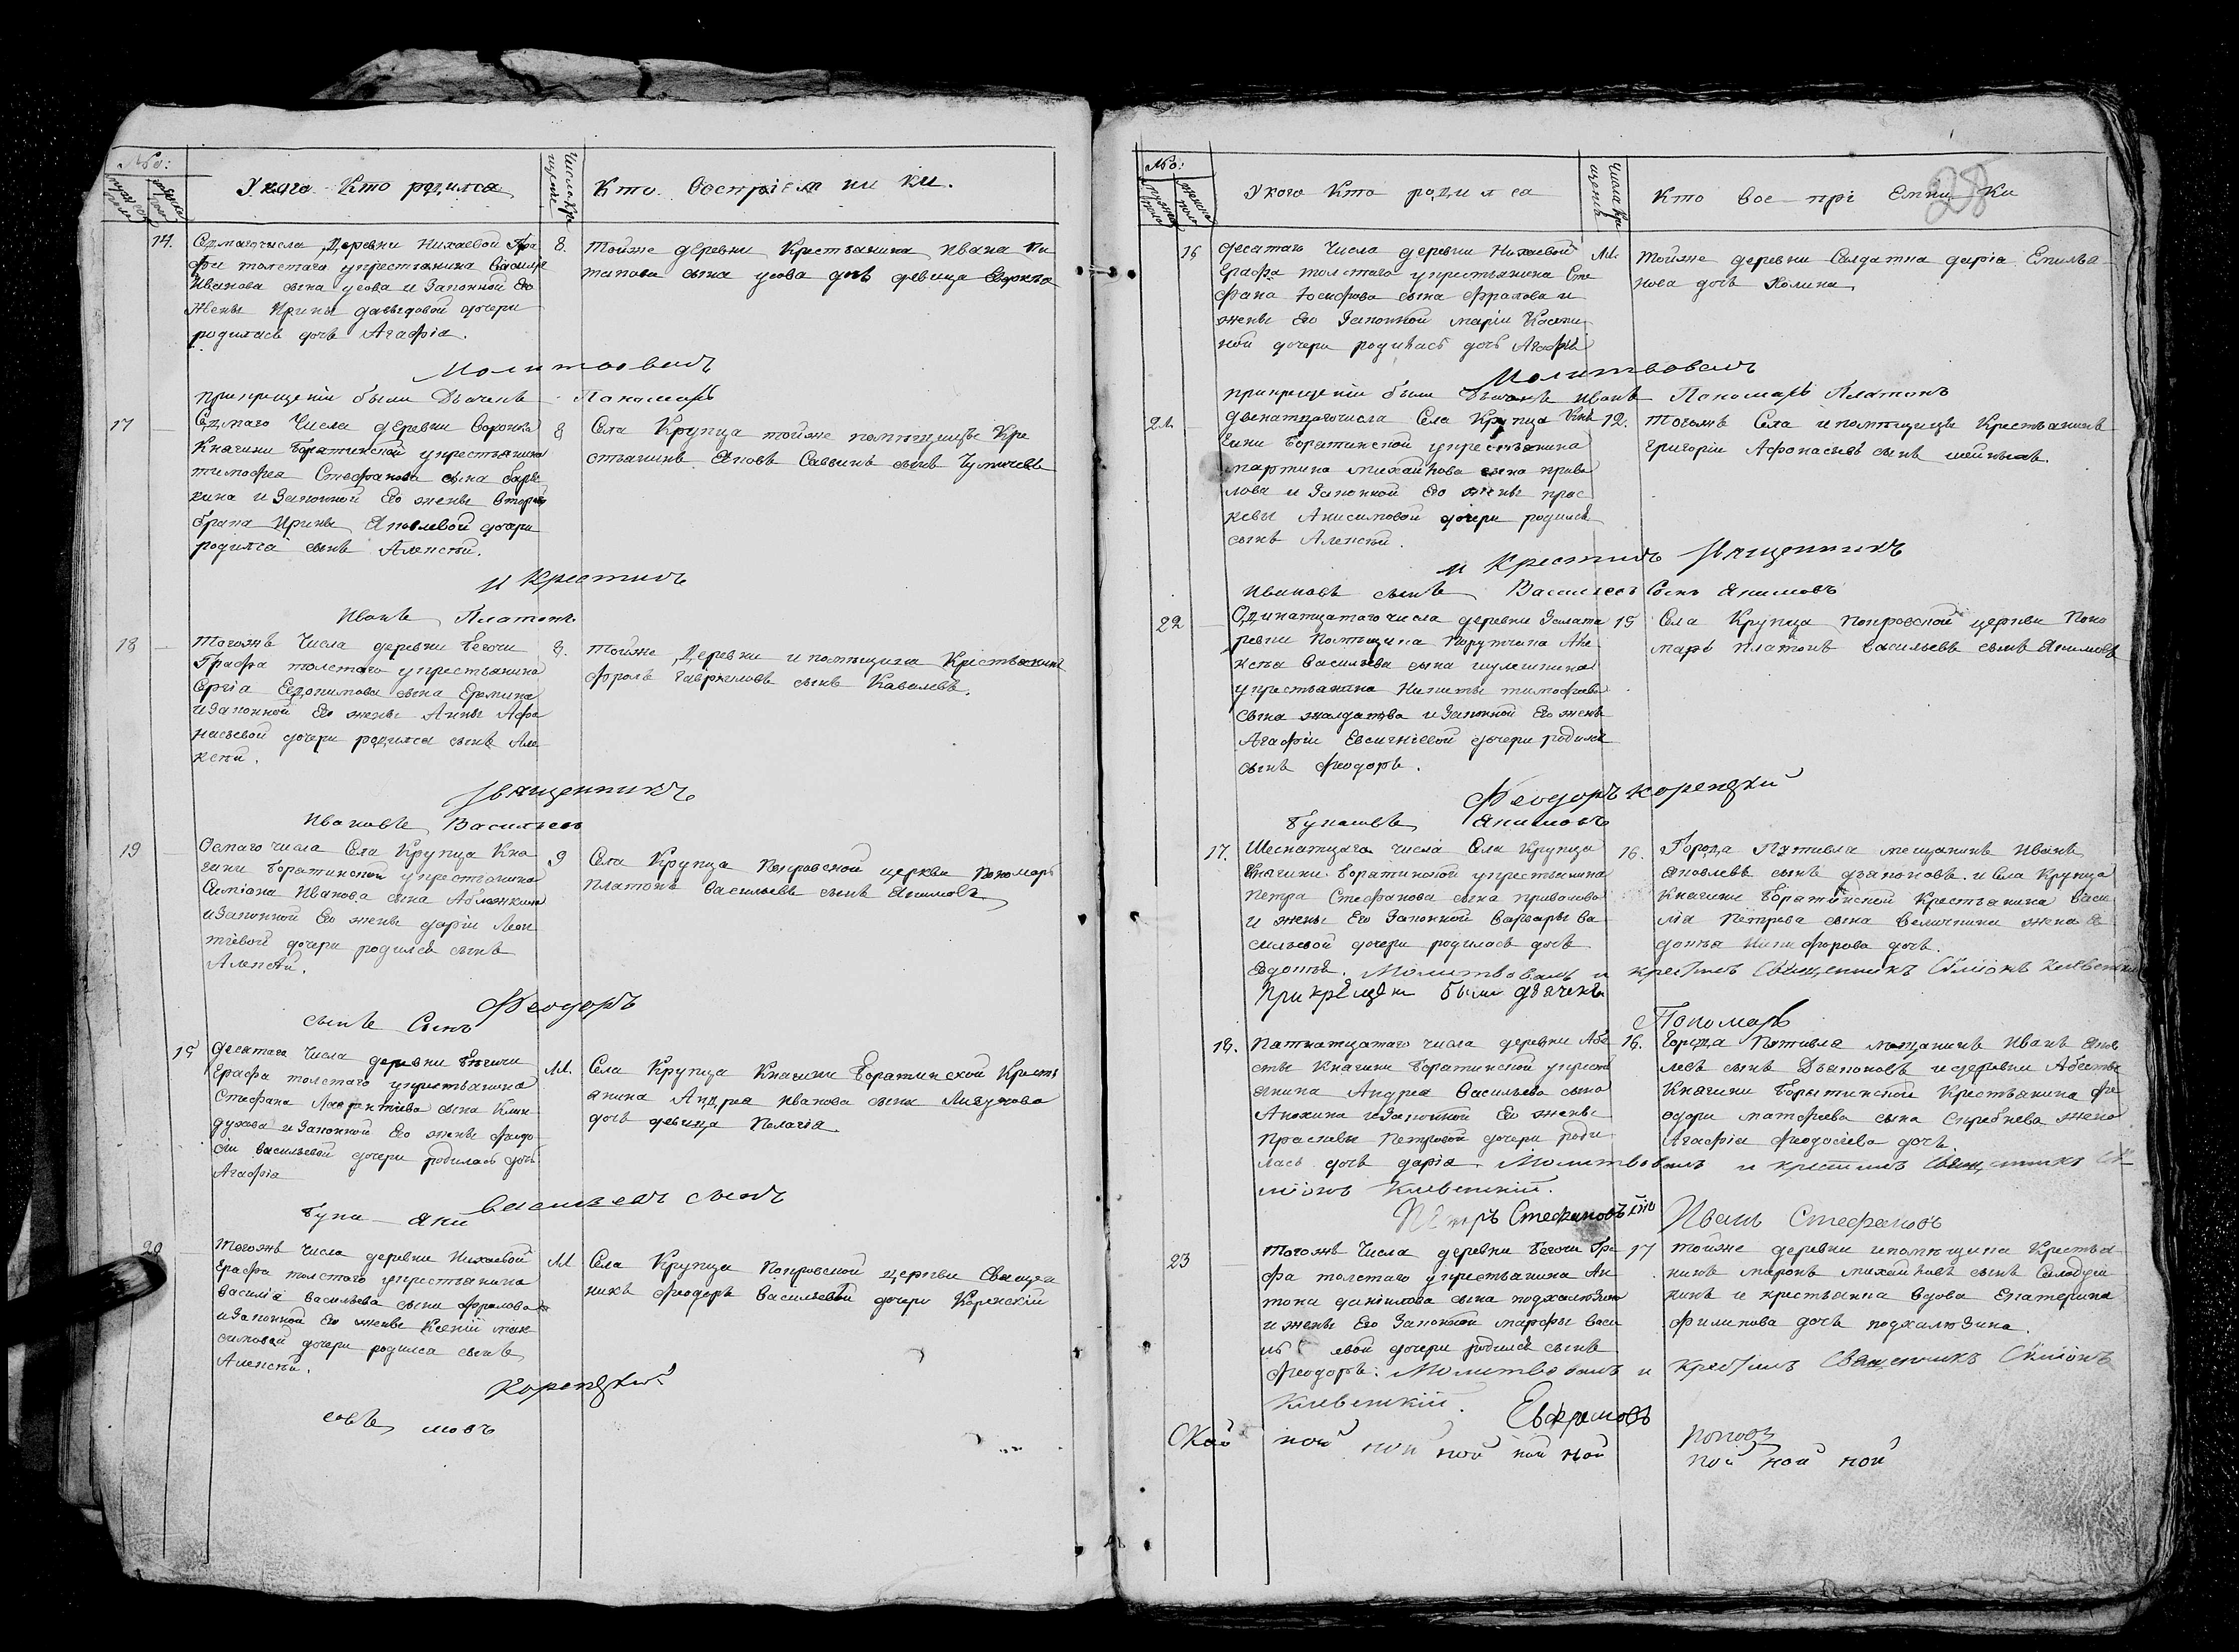 №:
мужеска пола
женска пола
У кого Кто родился
Число кре щенiя
Кто воспрiем ни ки.
14.
Седмаго числа Деревни Нихаевой Гра
фа толстаго укрестьянина Василья
Иванова сына усова и Законной Его
жены Ирины давыдовой дочери
родилась дочь Агафiя.
8.
тойже деревни Крестьянина Ивана По
тапова сына усова дочь девица
Молитвовалъ
прикрещенiи были Дьячекъ Пономарь
17
Седмаго Числа деревни
Княгини Борятинской укрестьянина
тимофея Стефанова сына
кина и Законной Его жены втораго
брака Ирины Яковлевой дочери
родился сынъ Алексѣй.
8
Села Крупца тойже помѣщицы Кре
стьянинъ Яковъ Саввинъ сынъ Чумичевъ
и Крестилъ
Иванъ Платонъ
18
Тогожъ Числа деревни Бегочи
Графа толстаго укрестьянина
Сергiя Евдокимова сына Еремина
и Законной Его жены Анны Афа
насьевой дочери родился сынъ Але
ксѣй.
8.
тойже Деревни и помѣщика Крестьянинъ
фролъ гавриловъ сынъ Кавалевъ.
священникъ
Ивановъ Васильевъ
19
Осмаго числа Села Крупца Кня
гини Борятинской укрестьянина
Семiона Иванова сына
и Законной Его жены дарiи Леон
тiевой дочери родился сынъ
Алексѣй.
9
Села Крупца Покровской церкви Пономарь
Платонъ Васильевъ сынъ Якимовъ
Феодоръ
сынъ Сынъ
15
Десятаго Числа деревни Бегочи
Графа толстаго укрестьянина
Стефана Лаврентiева сына Клин
духова и Законной Его жены федо
сiи васильевой дочери родилась дочь
Агафiя
11.
Села Крупца Княгини Борятинской Кресть
янина Андрея Иванова сына
дочь девица Пелагiя.
Васильевъ сынъ
Бука Яки
20
Тогожъ Числа деревни Нихаевой
Графа толстаго укрестьянина
василiя васильева сына фролова
и Законной Его жены Ксенiи мак
симовой дочери родился сынъ
Алексѣй.
11
Села Крупца Покровской церкви Священ
никъ Феодоръ Васильевой дочери Коренскiй
Коренскiй
совъ мовъ
№:
мужеска пола
женска пола
У кого Кто родился
Число кре щенiя
Кто вос прi емни Ки
28
16
десятаго Числа деревни Нихаевой
Графа толстаго укрестьянина Сте
фана Iосифова сына фролова и
жены Его Законной марiи
ной дочери родилась дочь Агафiя
11.
тойже деревни Салдатка дарiя Емилья
нова дочь Колина
Молитвовалъ
прикрещенiи были Дьячекъ Иванъ Пономарь Платонъ
21.
двенатцатчисла Села Крупца Кня
гини Борятинской укрестьянина
мартина михайлова сына прива
лова и Законной Его жены прас
ковьи Анисимовой дочери родился
сынъ Алексѣй.
12.
тогожъ Села и помѣщицы Крестьянинъ
григорiй Афонасьевъ сынъ
и Крестилъ священникъ
Ивановъ сынъ Васильевъ Сынъ Якимовъ
22
Одинатцатого числа деревни
ревки Помѣщика Порутчика Але
ксѣя васильева сына шулешкина
укрестьянина Никиты тимофеева
сына и Законной Его жены
Агафiи Евсигнiевой дочери родился
сынъ Феодоръ.
15
Села Крупца покровской церкви Поно
марь платонъ васильевъ сынъ Якимовъ
Феодоръ коренскiй
Букасовъ Якимовъ
17.
Шеснатцаго числа Села Крупца
Княгини Борятинской укрестьянина
Петра Стефанова сына привалова
и жены Его Законной варвары ва
сильевой дочери родилась дочь
Евдокiя. Молитвовалъ и крестилъ Священникъ Сѵмiонъ Клевенскiй
16.
Города Путивля мещанинъ Иванъ
яковлевъ сынъ дьяконовъ. и Села Крупца
Княгини Борятинской Крестьянина васи
лiя Петрова сына величкина жена Ев
докiя Никифорова дочь.
При крѣщени были дьячекъ
Пономарь
18.
Пятнатцатаго числа деревни Абе
сты Княгини Борятинской укресть
янина Андрея васильева сына
Анохина и Законной Его жены
Прасковьи Петровой дочери роди
лась дочь дарiя. Молитвовалъ и крестилъ Священникъ Сѵ
мiонъ Клевенскiй.
16.
Города Путивля мещанинъ Иванъ Яков
левъ сынъ Дьяконовъ и деревни Абесты
Княгини Борятинской Крестьянина фе
одора матфеева сына Скребнева жена
Агафiя Феодосiева дочь
Петръ Стефановъ Иванъ Стефановъ
23
Тогожъ Числа деревни Бегочи Гра
фа толстаго укрестьянина Ан
тона данiилова сына подхалюзина
и жены Его Законной марфы васи
левой дочери родился сынъ
Феодоръ: Молитвовалъ и крестилъ Священникъ Сѵмiонъ
Клевенскiй.
17
тойже деревни и помѣщика Крестья
нинъ маронъ михайловъ сынъ
кинъ и крестьянка вдова Екатерина
филипова дочь подхалюзина.
Евфремовъ поповъ
ской ной ной ной ной ной ной ной ной